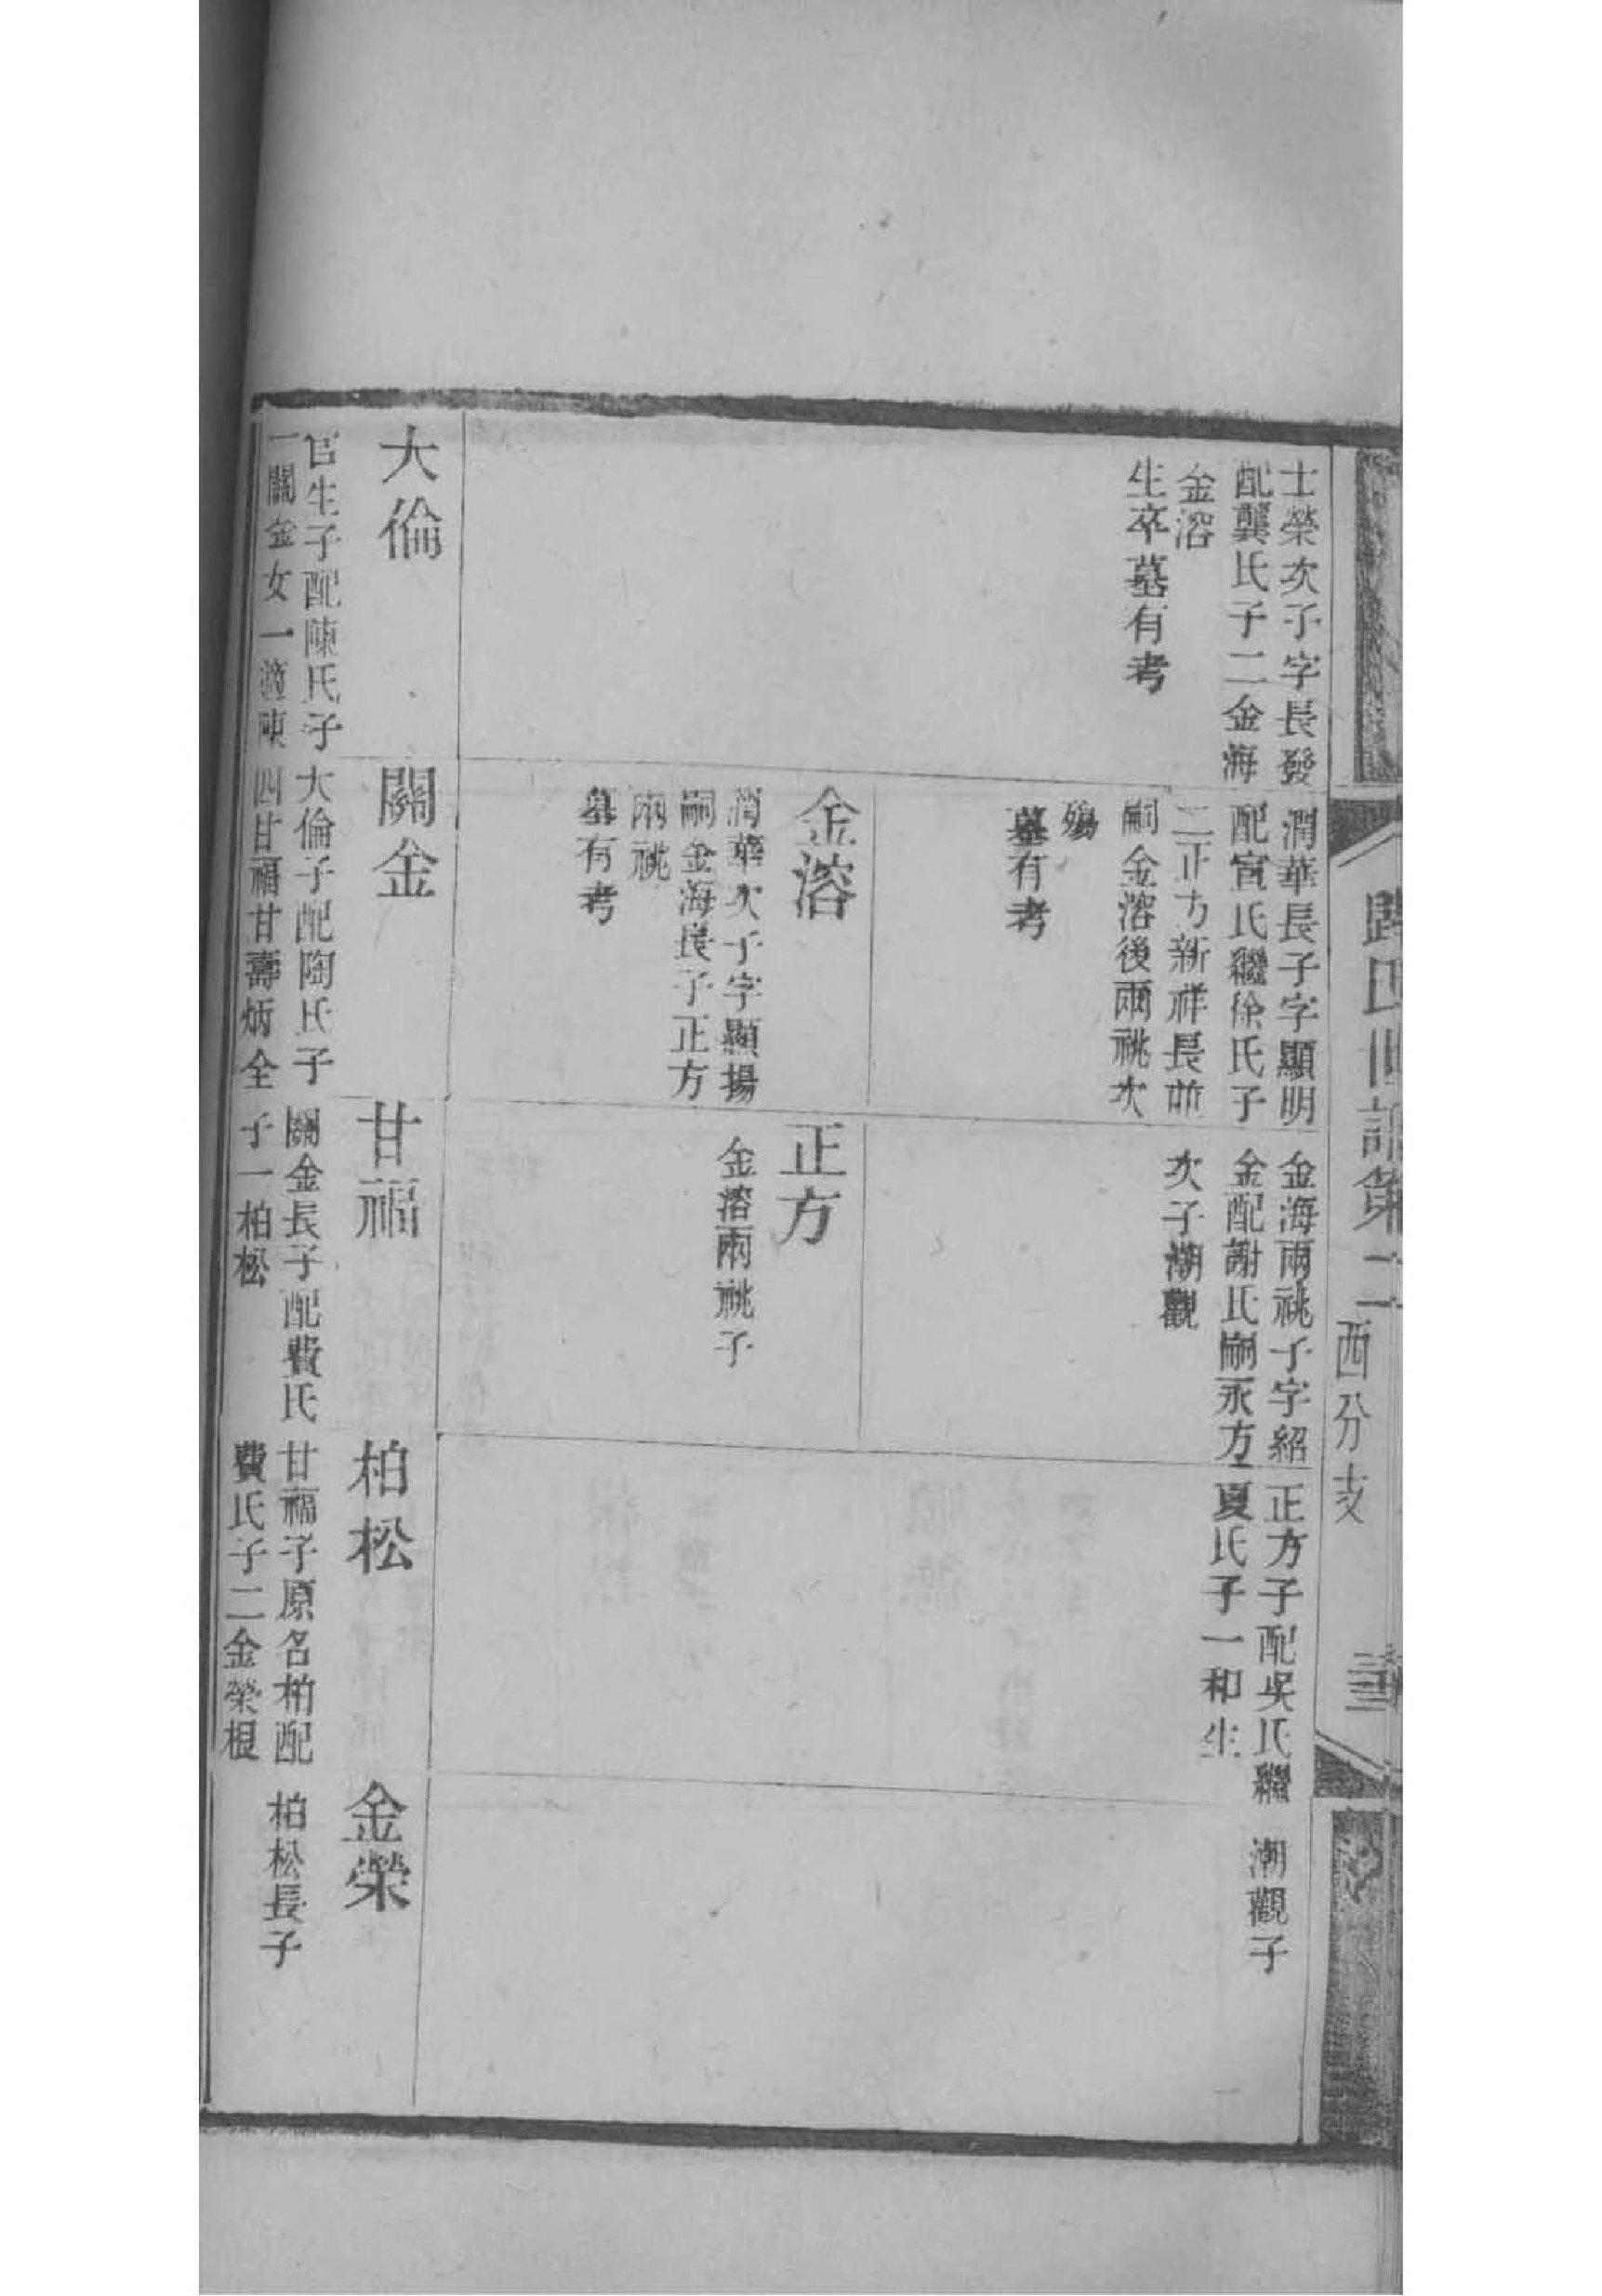 歸氏世譜第二
西分支
士榮次子字長發
配龔氏子二金海
金溶
生卒墓有考
潤華長子字顯明
配宣氏繼徐氏子
二正方新祥長並
嗣金溶後兩祧次
殤
墓有考
金溶
潤華次子字顯揚
嗣金海長子正方
兩祧
墓有考
金海兩祧子字紹
金配謝氏嗣永方
次子潮觀
正方
金溶兩祧子
正方子配吳氏繼
夏氏子一和生
潮觀子
大倫
官生子配陳氏子
一關金女一適陳
關金
大倫子配陶氏子
四甘福甘壽炳全
甘福
關金長子配費氏
子一柏松
柏松
甘福子原名柏配
費氏子二金榮根
金榮
柏松長子